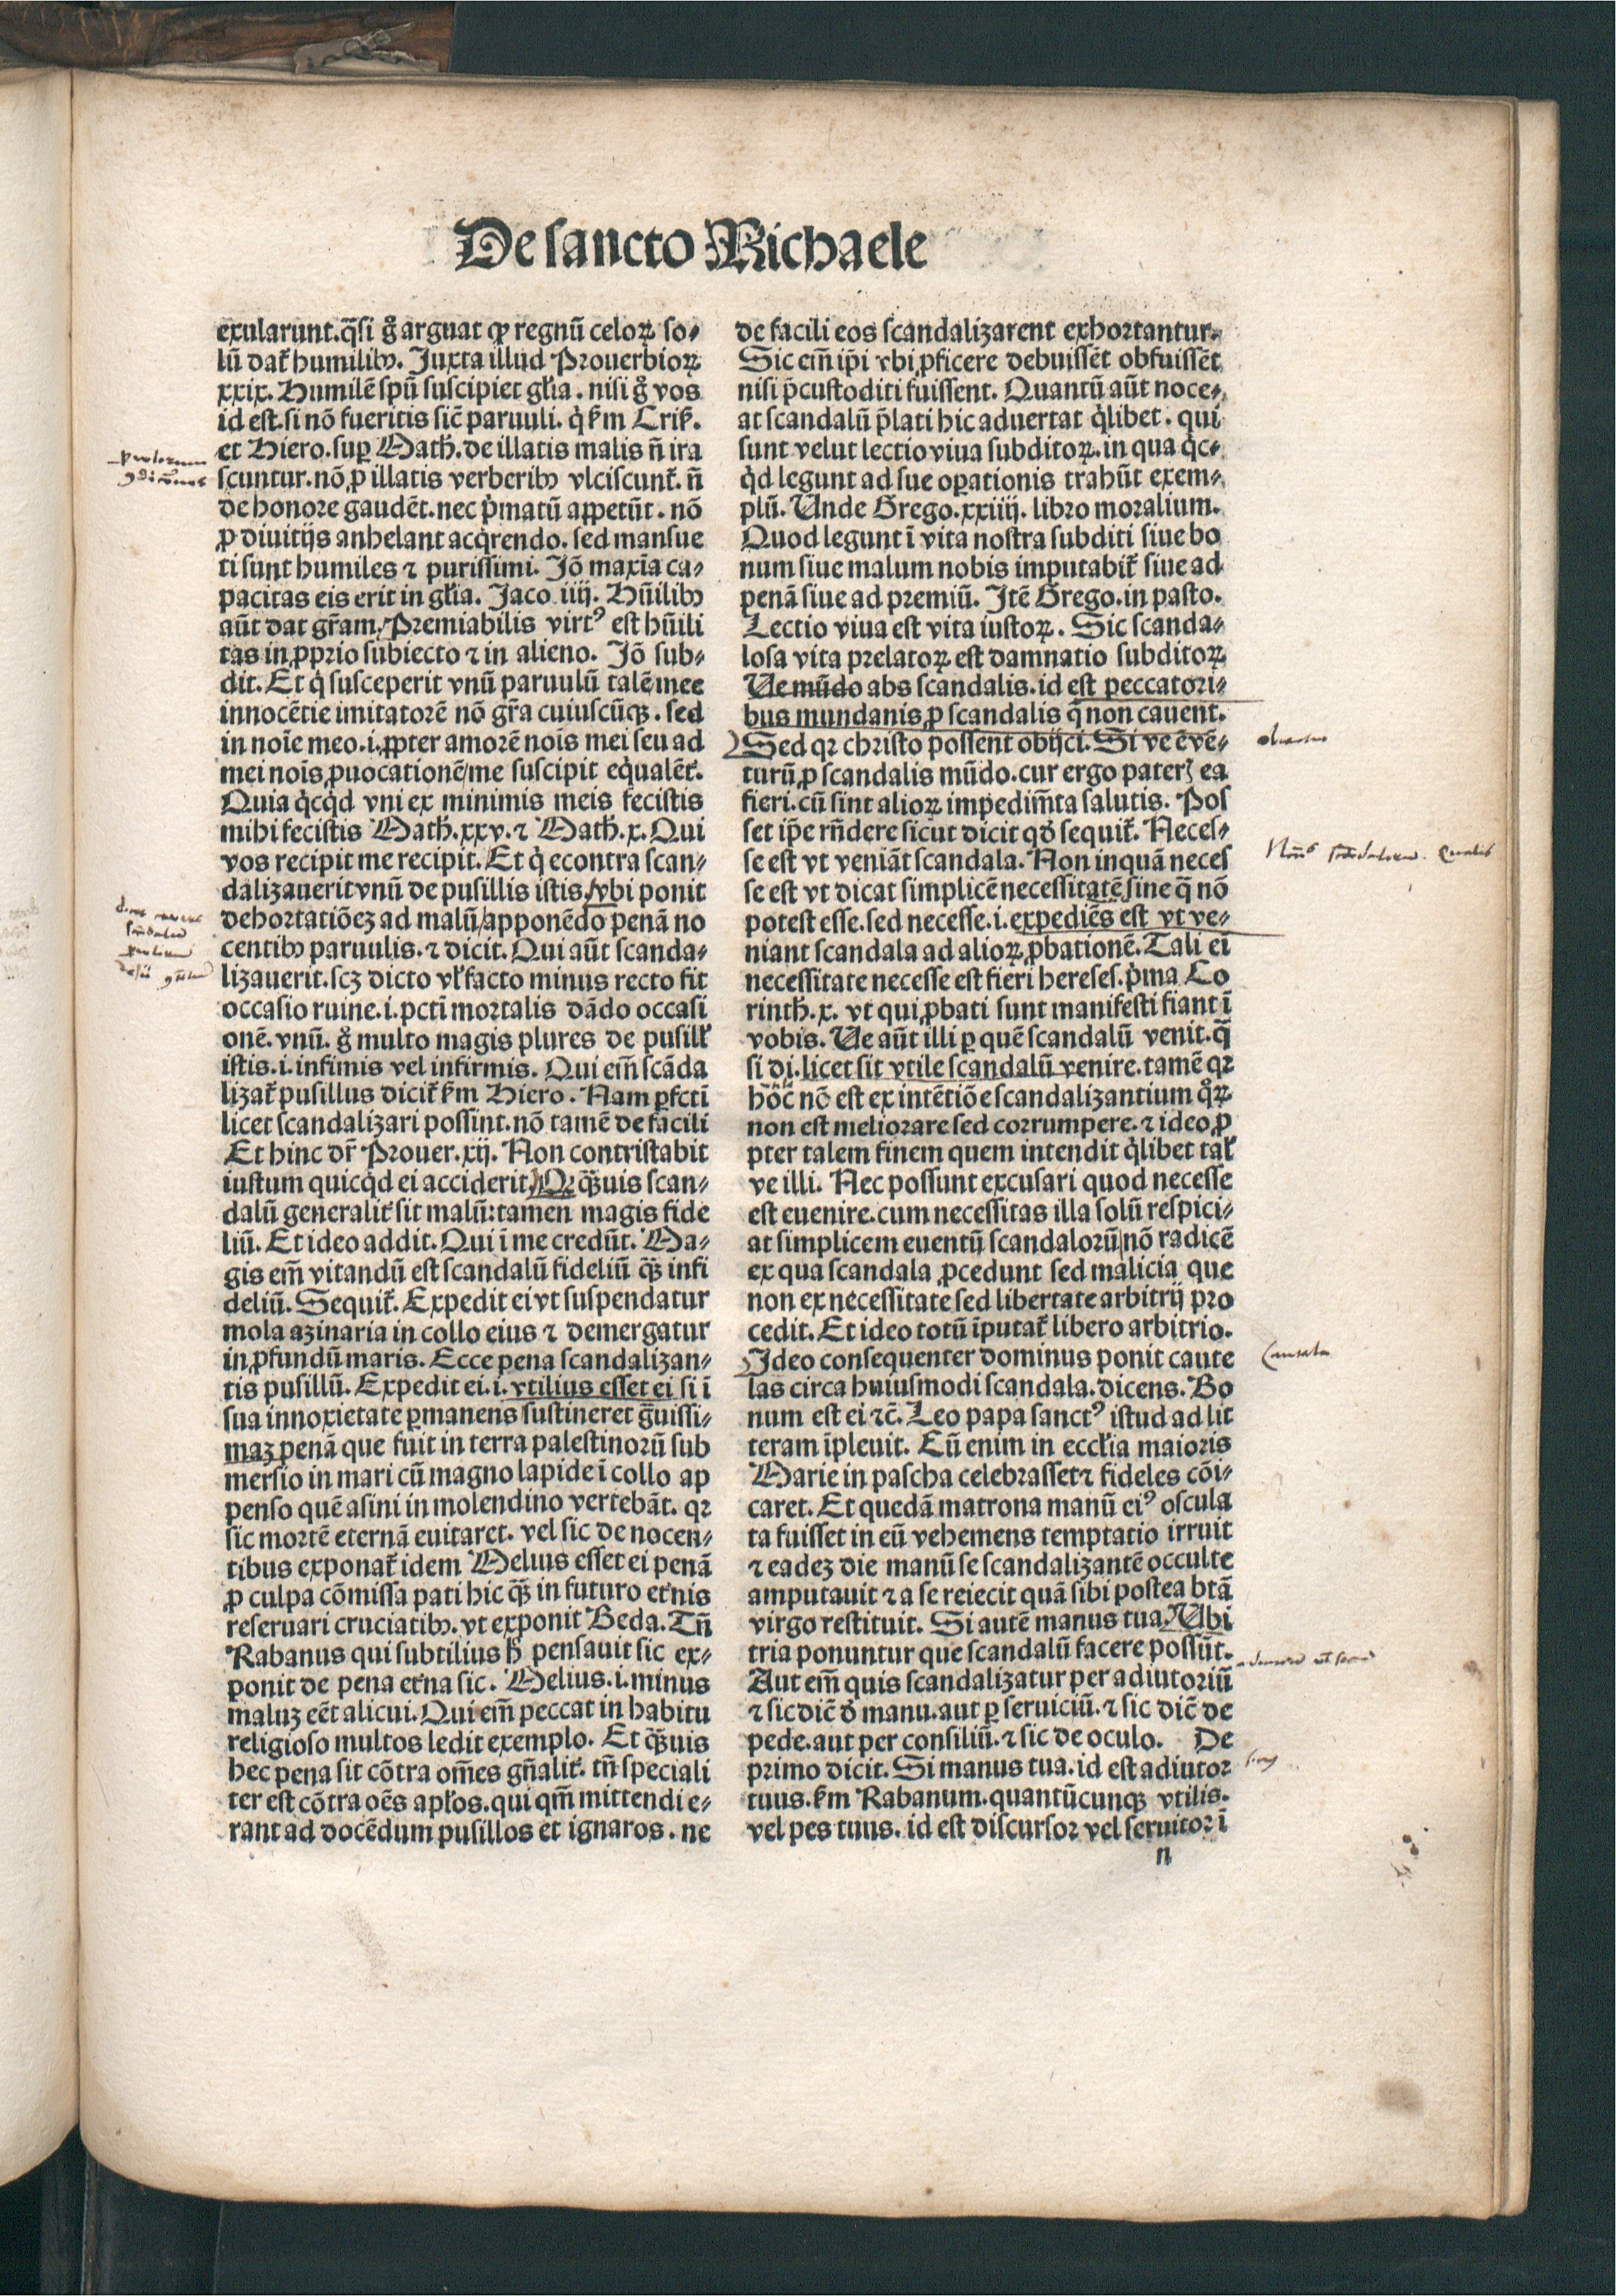 De sancto Michaele
exularunt. q̄si g̊ arguat ꝙ regnū celoꝝ so⸗
lū dat̃ humilibꝰ. Juxta illud Prouerbioꝝ
xxix. Humilē spū suscipiet gl̃ia. nisi g̊ vos
id est. si nō fueritis sic̄ paruuli. q̇ ẜm Cris̃.
et Hiero. sup̱ Math̃. de illatis malis n̄ ira
scuntur. nō ꝓ illatis verberibꝰ vlciscunt̃. n̄
de honore gaudēt. nec p̍matū appetūt. nō
ꝓ diuitijs anhelant acq̇rendo. sed mansue
ti sunt humiles ⁊ purissimi. Jō maxīa ca⸗
pacitas eis erit in gl̃ia. Jaco iiij. Hūilibꝰ
aūt dat gr̃am. Premiabilis virtꝰ est hūili
tas in ꝓprio subiecto ⁊ in alieno. Jō sub⸗
dit. Et q̇ susceperit vnū paruulū talē mee
innocētie imitatorē nō gr̃a cuiuscūqꝫ. sed
in noīe meo. i. ꝓpter amorē nois̄ mei seu ad
mei nois̄ ꝓuocationē/ me suscipit eq̇ualēt̃.
Quia q̇cq̇d vni ex minimis meis fecistis
mihi fecistis Math̃. xxv. ⁊ Math̃. x. Qui
vos recipit me recipit. Et q̇ econtra scan⸗
dalizauerit vnū de pusillis istis/ vbi ponit
dehortatiōeꝫ ad malū/ apponēdo penā no
centibꝰ paruulis. ⁊ dicit. Qui aūt scanda⸗
lizauerit. scꝫ dicto vl̃ facto minus recto fit
occasio ruine. i. pcti mortalis dādo occasi
onē. vnū. g̊ multo magis plures de pusill̃
istis. i. infimis vel infirmis. Qui em̄ scāda
lizat̃ pusillus dicit̃ ẜm Hiero. Nam ꝑfcti
licet scandalizari possint. nō tamē de facili
Et hinc dr̃ Prouer. xij. Non contristabit
iustum quicq̇d ei acciderit. Qꝛ q̄ꝫuis scan⸗
dalū generalit̃ sit malū: tamen magis fide
liū. Et ideo addit. Qui ī me credūt. Ma⸗
gis em̄ vitandū est scandalū fideliū q̄ꝫ infi
deliū. Sequit̃. Expedit ei vt suspendatur
mola azinaria in collo eius ⁊ demergatur
in ꝓfundū maris. Ecce pena scandalizan⸗
tis pusillū. Expedit ei. i. vtilius esset ei si ī
sua innoxietate ꝑmanens sustineret g̃uissi⸗
maꝫ penā que fuit in terra palestinorū sub
mersio in mari cū magno lapide ī collo ap
penso quē asini in molendino vertebāt. qꝛ
sic mortē eternā euitaret. vel sic de nocen⸗
tibus exponat̃ idem Melius esset ei penā
ꝓ culpa cōmissa pati hic q̄ꝫ in futuro et̃nis
reseruari cruciatibꝰ. vt exponit Beda. Tn̄
Rabanus qui subtilius h̊ pensauit sic ex⸗
ponit de pena et̃na sic. Melius. i. minus
maluꝫ eēt alicui. Qui em̄ peccat in habitu
religioso multos ledit exemplo. Et q̄ꝫuis
hec pena sit cōtra om̄es gn̄alit̃. tn̄ speciali
ter est cōtra oēs apl̃os. qui qm̄ mittendi e⸗
rant ad docēdum pusillos et ignaros. ne
de facili eos scandalizarent exhortantur.
Sic em̄ ip̄i vbi ꝓficere debuissēt obfuissēt
nisi p̄custoditi fuissent. Quantū aūt noce⸗
at scandalū p̄lati hic aduertat q̇libet. qui
sunt velut lectio viua subditoꝝ. in qua q̇c⸗
q̇d legunt ad sue oꝑationis trahūt exem⸗
plū. Unde Grego. xxiiij. libro moralium.
Quod legunt ī vita nostra subditi siue bo
num siue malum nobis imputabit̃ siue ad
penā siue ad premiū. Jtē Grego. in pasto.
Lectio viua est vita iustoꝝ. Sic scanda⸗
losa vita prelatoꝝ est damnatio subditoꝝ
Ue mūdo abs scandalis. id est peccatori⸗
bus mundanis ꝓ scandalis q̄ non cauent.
Sed qꝛ christo possent obijci. Si ve ē vē⸗
turū ꝓ scandalis mūdo. cur ergo pateris̃ ea
fieri. cū sint alioꝝ impedim̄ta salutis. Pos
set ip̄e rn̄dere sicut dicit qđ sequit̃. Neces⸗
se est vt veniāt scandala. Non inquā neces
se est vt dicat simplicē necessitatē sine q̄ nō
potest esse. sed necesse. i. expediēs est vt ve⸗
niant scandala ad alioꝝ ꝓbationē. Tali ei̇
necessitate necesse est fieri hereses. p̍ma Co
rinth̃. x. vt qui ꝓbati sunt manifesti fiant ī
vobis. Ue aūt illi ꝑ quē scandalū venit. q̄
si di. licet sit vtile scandalū venire. tamē qꝛ
hoc nō est ex intētiōe scandalizantium q̊ꝝ
non est meliorare sed corrumpere. ⁊ ideo ꝓ
pter talem finem quem intendit q̇libet tal̃
ve illi. Nec possunt excusari quod necesse
est euenire. cum necessitas illa solū respici⸗
at simplicem euentū scandalorū/ nō radicē
ex qua scandala ꝓcedunt sed malicia que
non ex necessitate sed libertate arbitrij pro
cedit. Et ideo totū īputat̃ libero arbitrio.
Jdeo consequenter dominus ponit caute
las circa huiusmodi scandala. dicens. Bo
num est ei ⁊c̄. Leo papa sanctꝰ istud ad lit
teram īpleuit. Cū enim in eccl̃ia maioris
Marie in pascha celebrasset ⁊ fideles cōi⸗
caret. Et quedā matrona manū eiꝰ oscula
ta fuisset in eū vehemens temptatio irruit
⁊ eadeꝫ die manū se scandalizantē occulte
amputauit ⁊ a se reiecit quā sibi postea btā
virgo restituit. Si autē manus tua. Ubi
tria ponuntur que scandalū facere possūt.
Aut em̄ quis scandalizatur per adiutoriū
⁊ sic dic̄ đ manu. aut ꝑ seruiciū. ⁊ sic dic̄ de
pede. aut per consiliū. ⁊ sic de oculo. De
primo dicit. Si manus tua. id est adiutor
tuus. ẜm Rabanum. quantūcunqꝫ vtilis.
vel pes tuus. id est discursor vel seruitor ī
n